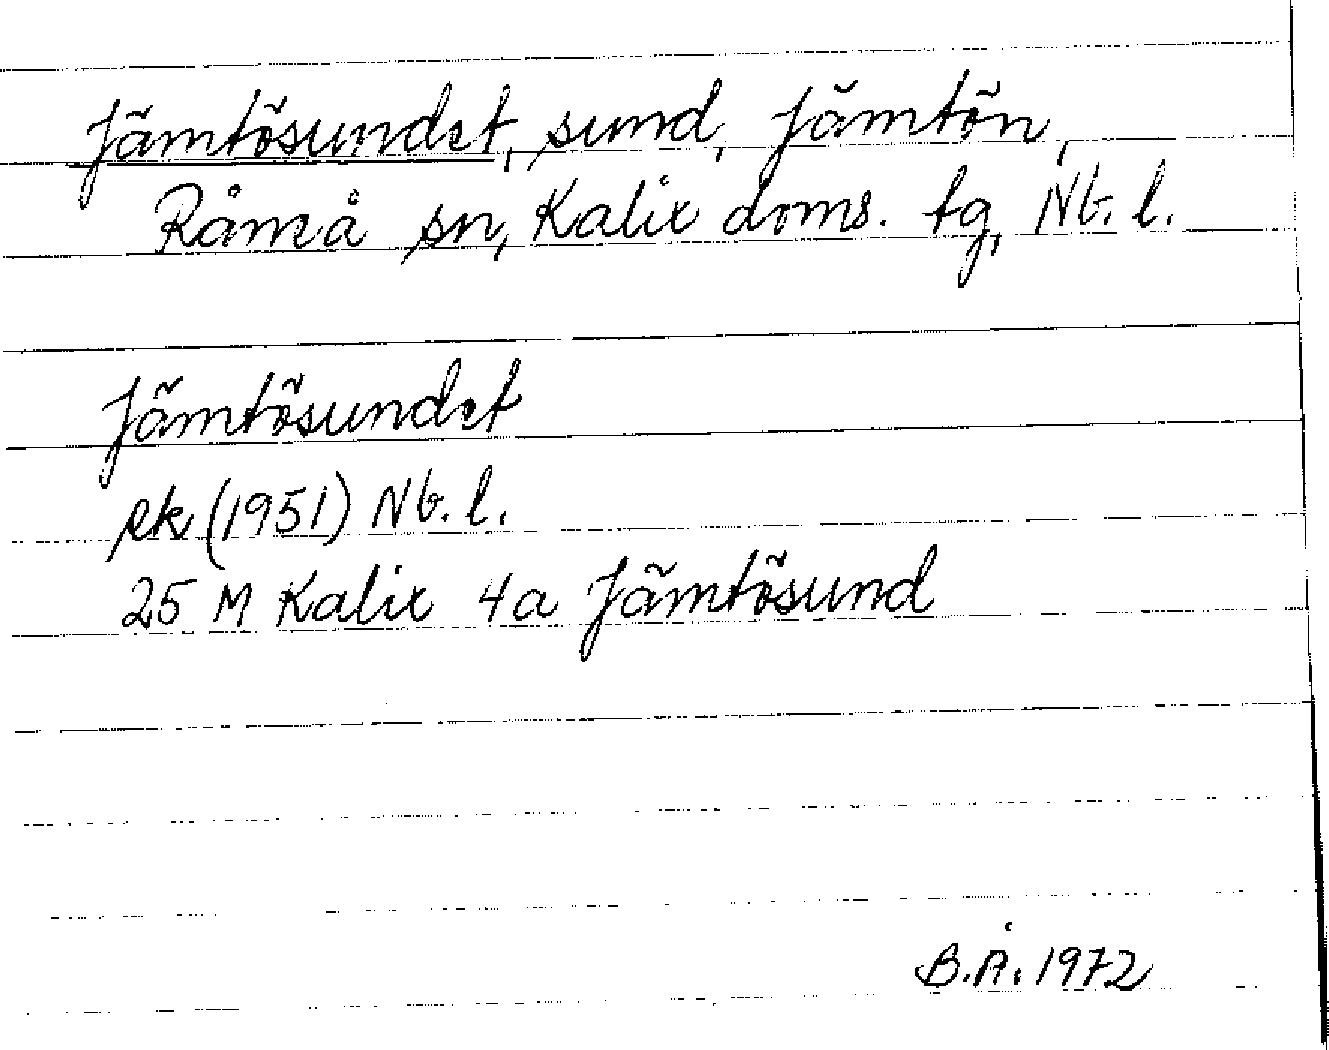 Jämtösundet, sund, Jämtön,
Råneå sn, Kalix doms. tg, Nb. l.
Jämtösundet
ek (1951) Nb. l.
25 M Kalix 4a Jämtösund
B.Å. 1972